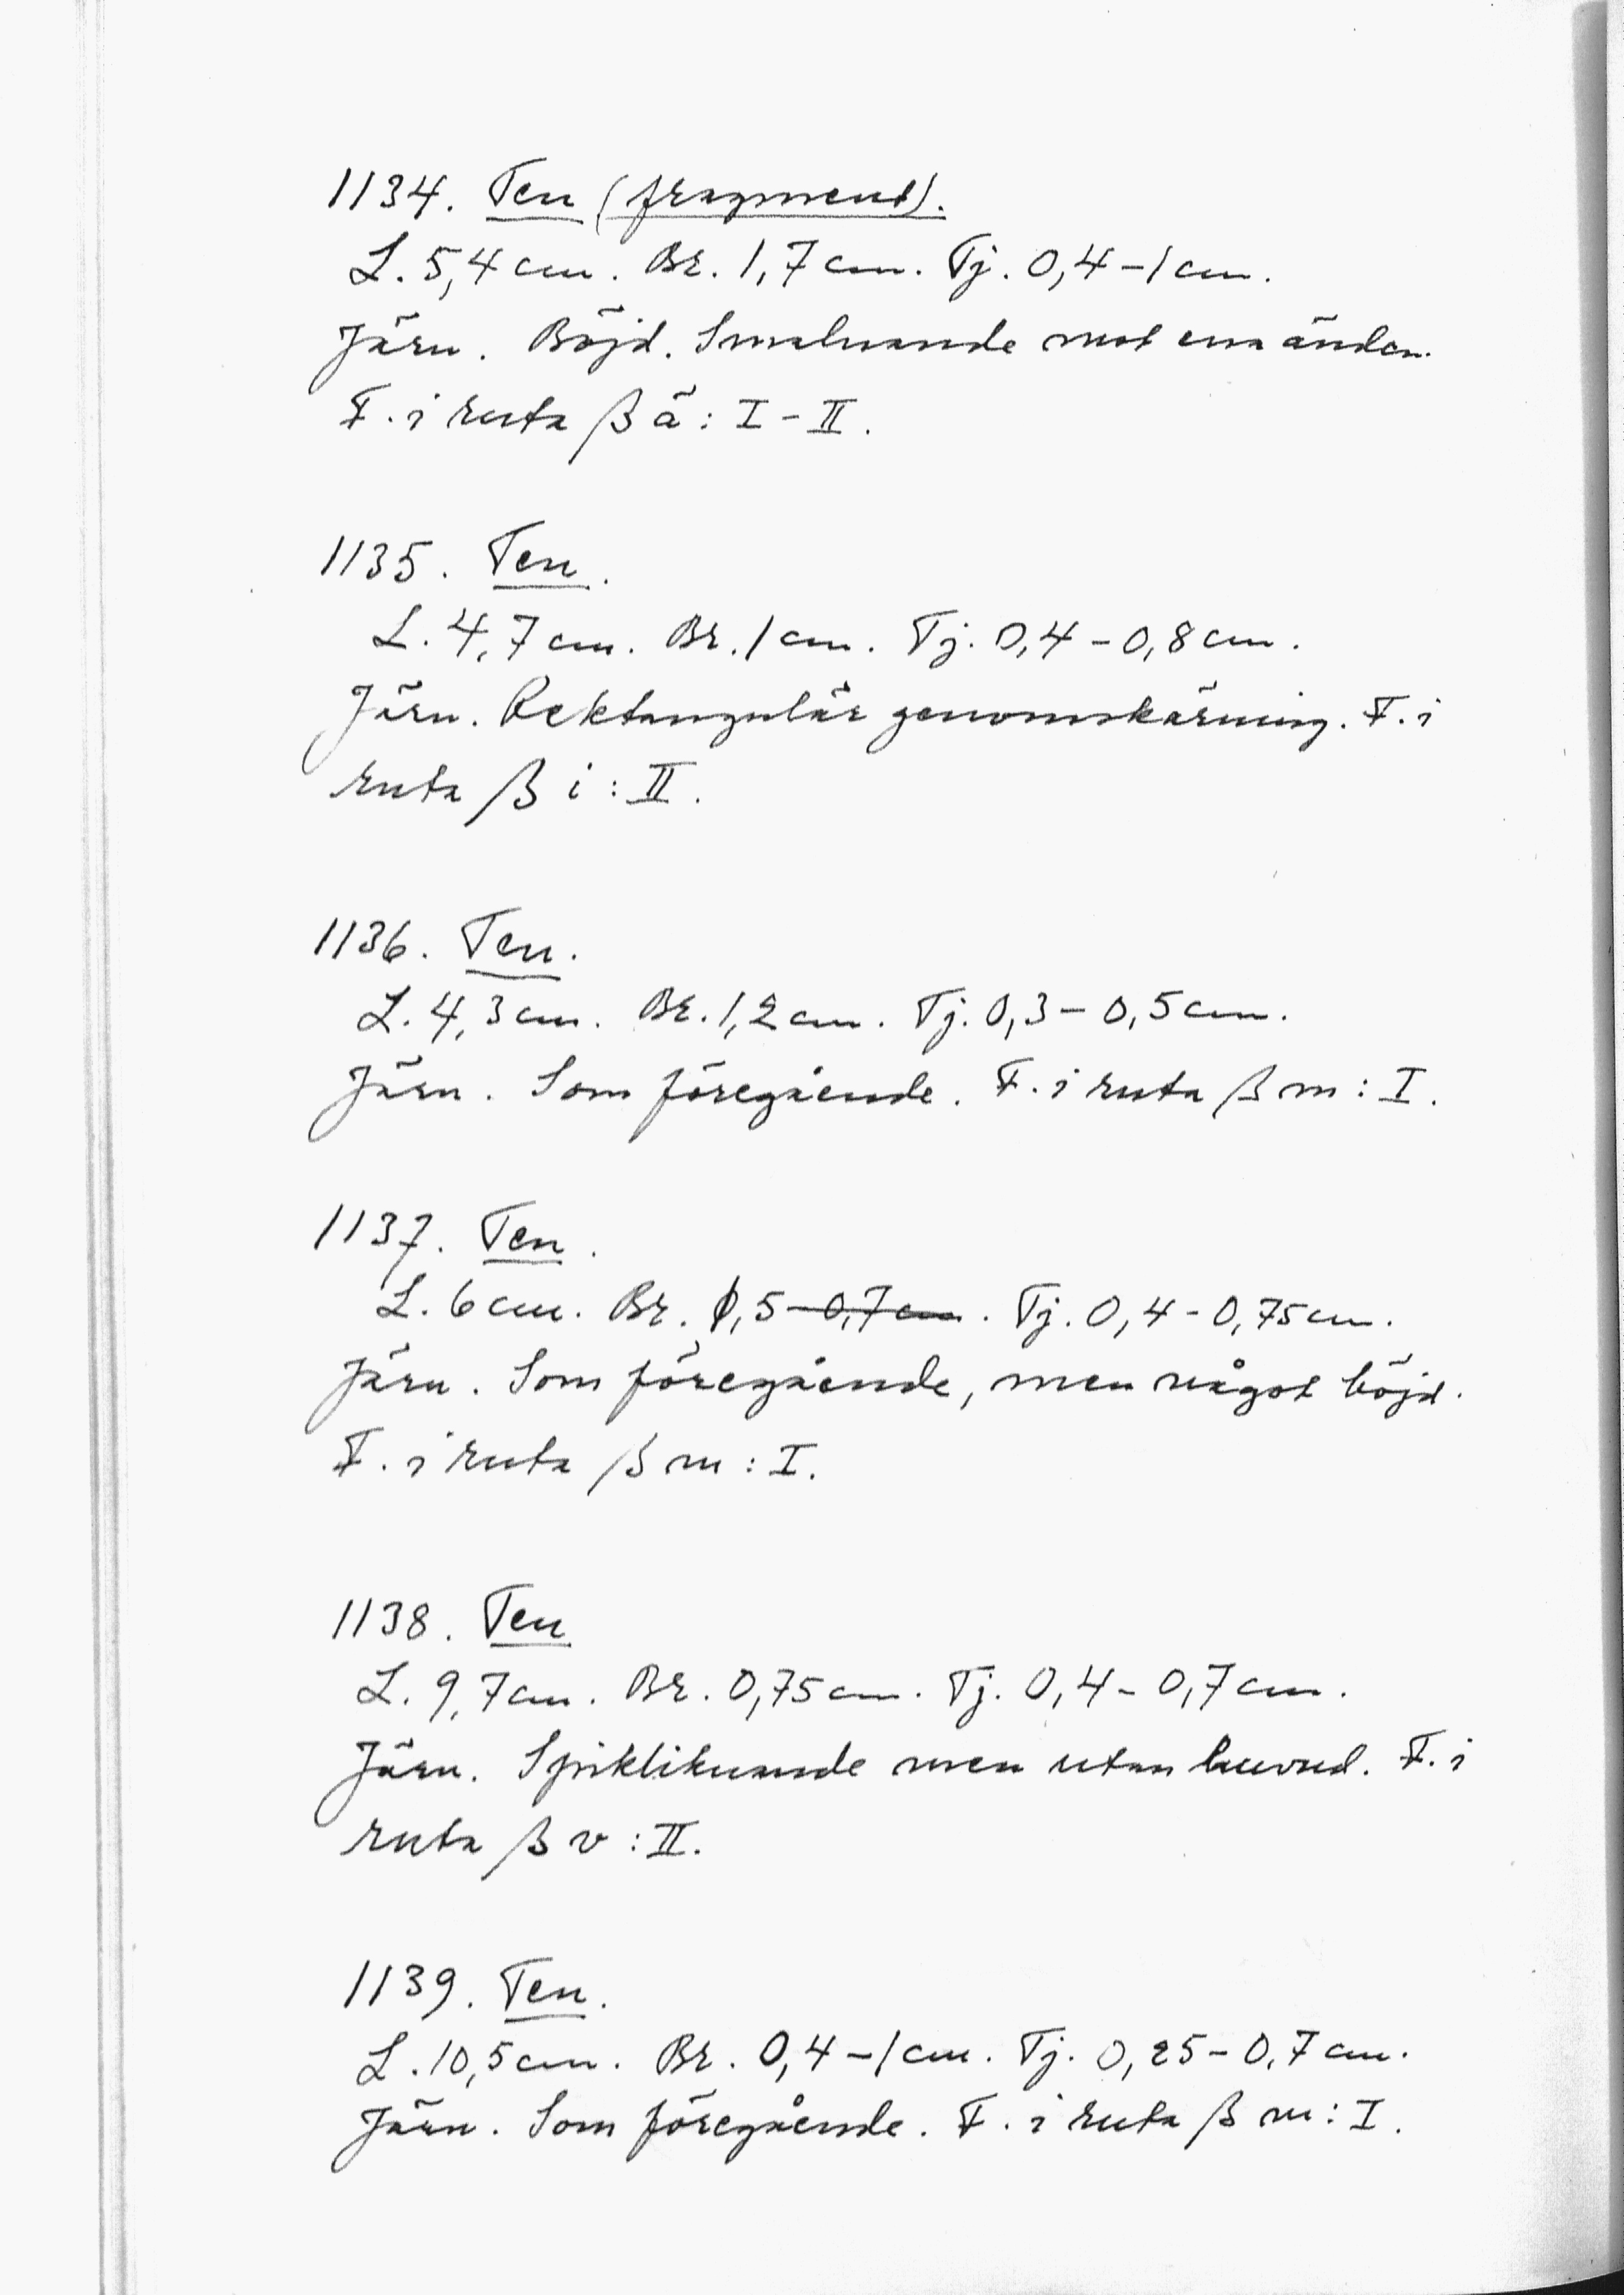 1134. Ten (fragment).
L. 5,4 cm. Br. 1,7 cm. Tj. 0,4-1 cm.
Järn. Böjd. Smalnande mot ena änden.
F. i ruta ß ä: I-II.
1135. Ten.
L. 4,7 cm. Br. 1 cm. Tj. 0,4-0,8 cm.
Järn. Rektangulär genomskärning. F. i
ruta ß i: II.
1136. Ten.
L. 4,3 cm. Br. 1,2 cm. Tj. 0,3-0,5 cm.
Järn. Som föregående. F. i ruta ß m: I.
1137. Ten.
L. 6 cm. Br. 1,5-0,7 cm. Tj. 0,4-0,75 cm.
Järn. Som föregående, men något böjd.
F. i ruta ß m: I.
1138. Ten
L. 9,7 cm. Br. 0,75 cm. Tj. 0,4-0,7 cm.
Järn. Spikliknande men utan huvud. F. i
ruta ß v: II.
1139. Ten.
L. 10,5 cm. Br. 0,4-1 cm. Tj. 0,25-0,7 cm.
Järn. Som föregående. F. i ruta ß m: I.